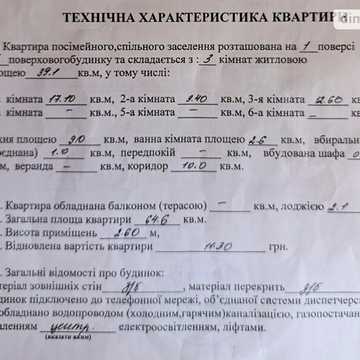 dim
ТЕХНІЧНА ХАРАКТЕРИСТИКА КВАРТИРИ
Квартира посімейного,спільного заселення розташована на 1 поверсі
поверховогобудинку та складається з : 3 кімнат житловою
ощею 39.1 кв.м, у тому числі:
кімната 17.10 кв.м, 2-а кімната 9.40 кв.м, 3-я кімната 12.60 кв
кімната – кв.м, 5-а кімната – кв.м, 6-а кімната – кв
ня площею 9.0 кв.м, ванна кімната площею 2.6 кв.м, вбиральн
єднана) 1.0 кв.м, передпокій – кв.м, вбудована шафа 0
м, веранда – кв.м, коридор 10.0 кв.м.
. Квартира обладнана балконом (терасою) – кв.м, лоджією 2.1
. Загальна площа квартири 64.6 кв.м.
. Висота приміщень 2.60 м,
. Відновлена вартість квартири 1130 грн.
. Загальні відомості про будинок:
теріал зовнішніх стін з/б, матеріал перекрить з/б
динок підключено до телефонної мережі, об'єднаної системи диспетчерс
обладнано водопроводом (холодним,гарячим)каналізацією, газопостачан
аленням центр. електроосвітленням, ліфтами.
(вказати який)